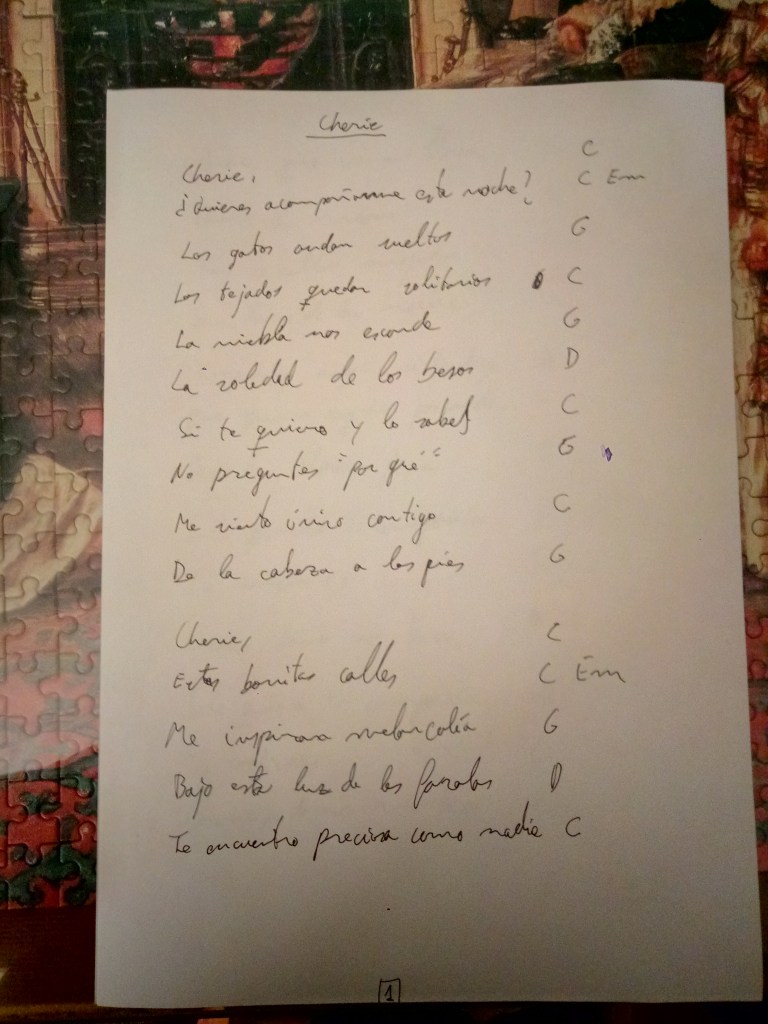 Cherie
Cherie, C
¿Quieres acompañarme esta noche? C Em
Los gatos andan sueltos G
Los tejados quedan solitarios C
La niebla nos esconde G
La soledad de los besos D
Si te quiero y lo sabes C
No preguntes "por qué" G
Me siento único contigo C
De la cabeza a los pies G
Cherie, C
Estas bonitas calles C Em
Me inspiran melancolía G
Bajo esta luz de las farolas D
Te encuentro preciosa como nadie C
1